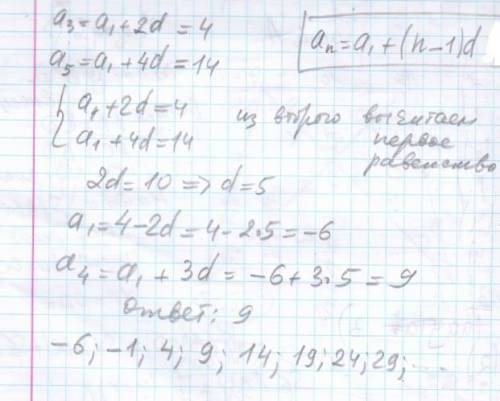 a₃ = a₁ + 2d = 4
aₙ = a₁ + (n-1)d
a₅ = a₁ + 4d = 14
{ a₁ + 2d = 4
a₁ + 4d = 14
из второго вычитаем
первое
равенство
2d = 10 => d = 5
a₁ = 4 - 2d = 4 - 2·5 = -6
a₄ = a₁ + 3d = -6 + 3·5 = 9
Ответ: 9
-6; -1; 4; 9; 14; 19; 24; 29; ...